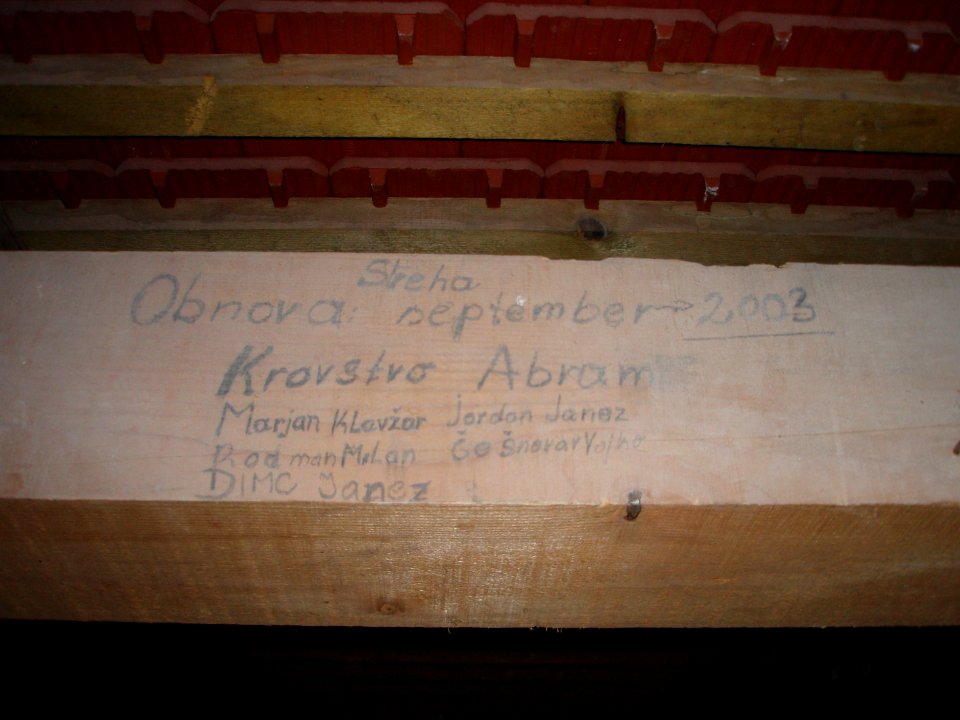 Streha
Obnova: september → 2003
Krovstvo Abram
Marjan KLavžar Jordan Janez
Rodman MiLan Češnovar Vojko
DIMC Janez